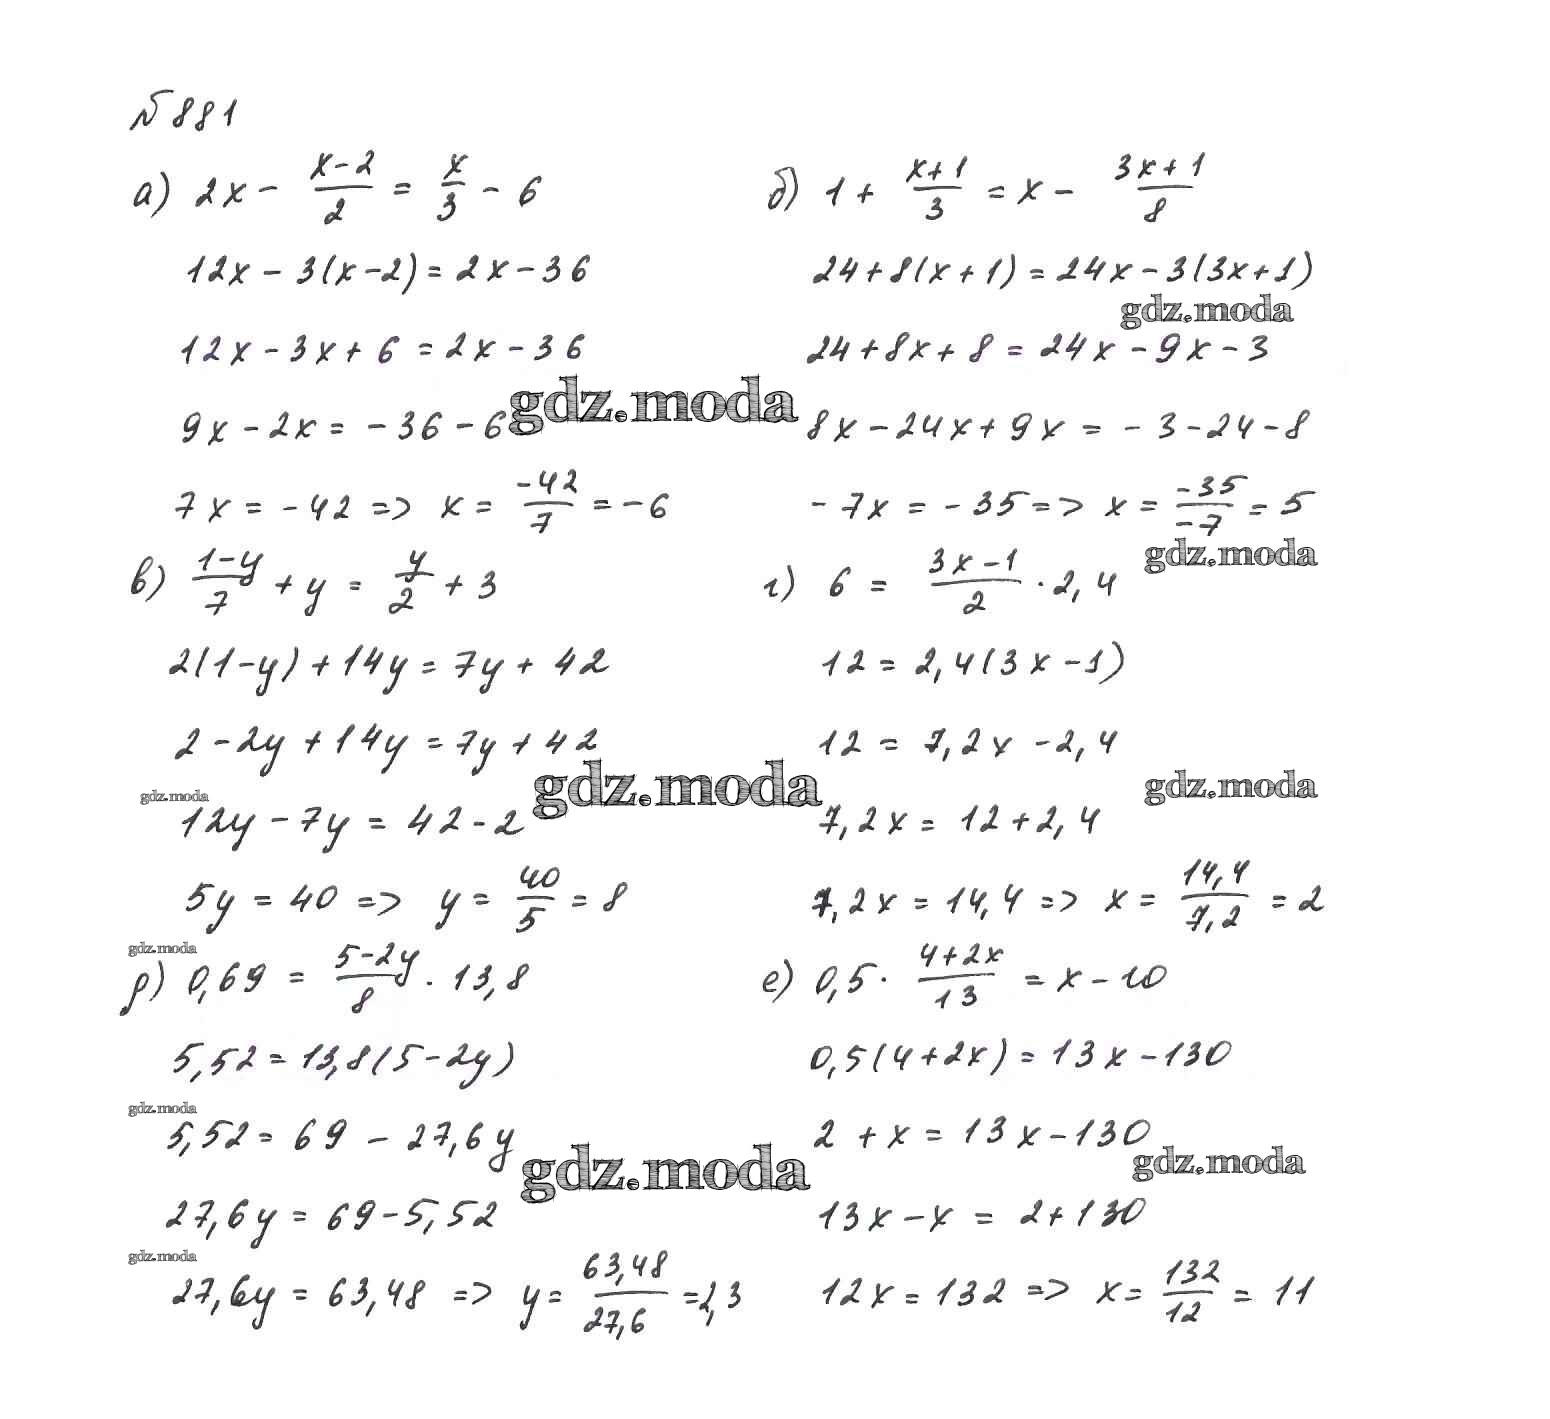 №881
а) 2x - (x-2)/2 = x/3 - 6
12x - 3(x-2) = 2x - 36
12x - 3x + 6 = 2x - 36
9x - 2x = -36 - 6
7x = -42 => x = -42/7 = -6
б) 1 + (x+1)/3 = x - (3x+1)/8
24 + 8(x+1) = 24x - 3(3x+1)
gdz.moda
24 + 8x + 8 = 24x - 9x - 3
gdz.moda
8x - 24x + 9x = -3 - 24 - 8
-7x = -35 => x = -35/-7 = 5
gdz.moda
в) (1-y)/7 + y = y/2 + 3
2(1-y) + 14y = 7y + 42
2 - 2y + 14y = 7y + 42
gdz.moda
gdz.moda
12y - 7y = 42 - 2
5y = 40 => y = 40/5 = 8
г) 6 = (3x-1)/2 · 2,4
12 = 2,4(3x-1)
12 = 7,2x - 2,4
gdz.moda
7,2x = 12 + 2,4
7,2x = 14,4 => x = 14,4/7,2 = 2
gdz.moda
д) 0,69 = (5-2y)/8 · 13,8
5,52 = 13,8(5-2y)
gdz.moda
5,52 = 69 - 27,6y
gdz.moda
27,6y = 69 - 5,52
gdz.moda
27,6y = 63,48 => y = 63,48/27,6 = 2,3
е) 0,5 · (4+2x)/13 = x - 10
0,5(4+2x) = 13x - 130
2 + x = 13x - 130
gdz.moda
13x - x = 2 + 130
12x = 132 => x = 132/12 = 11